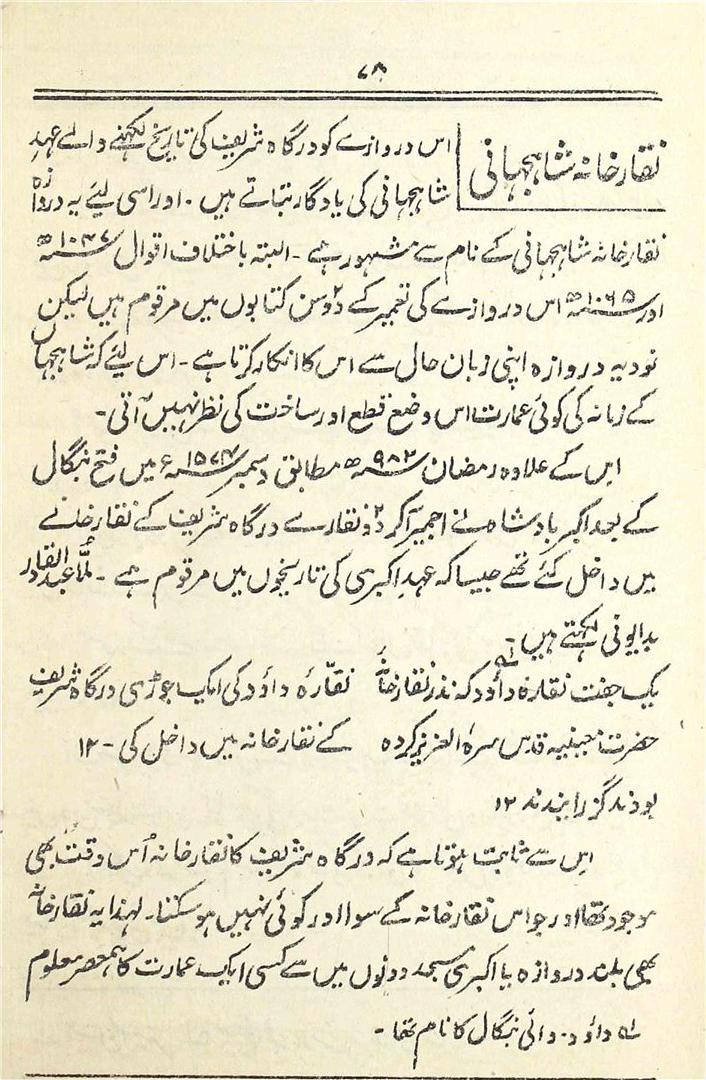 ۷۸
نقارخانہ شاہجہانی
اس دروازے کو درگاہ شریف کی تاریخ لکھنے والے عہد
شاہجہانی کی یادگار بتاتے ہیں ۔ اور اسی لیئے یہ دروازہ
نقارخانہ شاہجہانی کے نام سے مشہور ہے ۔ البتہ باختلاف اقوال ۱۰۴۷ھ
اور ۱۰۶۵ھ اس دروازے کی تعمیر کے دو سن کتابوں میں مرقوم ہیں لیکن
خود یہ دروازہ اپنی زبان حال سے اس کا انکار کرتا ہے ۔ اس لیئے کہ شاہجہاں
کے زمانہ کی کوئی عمارت اس وضع قطع اور ساخت کی نظر نہیں آتی ۔
اس کے علاوہ رمضان ۹۸۲ھ مطابق دسمبر ۱۵۷۴ء میں فتح بنگال
کے بعد اکبر بادشاہ نے اجمیر آکر دو نقارے درگاہ شریف کے نقار خانے
میں داخل کئے تھے جیسا کہ عہد اکبری کی تاریخوں میں مرقوم ہے ۔ مُلّا عبدالقادر
بدایونی لکھتے ہیں ۔
یک جفت نقارہ داؤد کہ نذر نقارخانۂ
حضرت معینیہ قدس سرہ العزیز کردہ
بودند گزرانیدند ۱۲
نقّارہ داؤد کی ایک جوڑی درگاہ شریف
کے نقار خانہ میں داخل کی ۔ ۱۲
اس سے ثابت ہوتا ہے کہ درگاہ شریف کا نقارخانہ اُس وقت بھی
موجود تھا اور جو اس نقارخانہ کے سوا اور کوئی نہیں ہو سکتا ۔ لہٰذا یہ نقارخانہ
بھی بلند دروازہ یا اکبری مسجد دونوں میں سے کسی ایک عمارت کا ہمعصر معلوم
لہ داؤد ۔ والئی بنگال کا نام تھا ۔